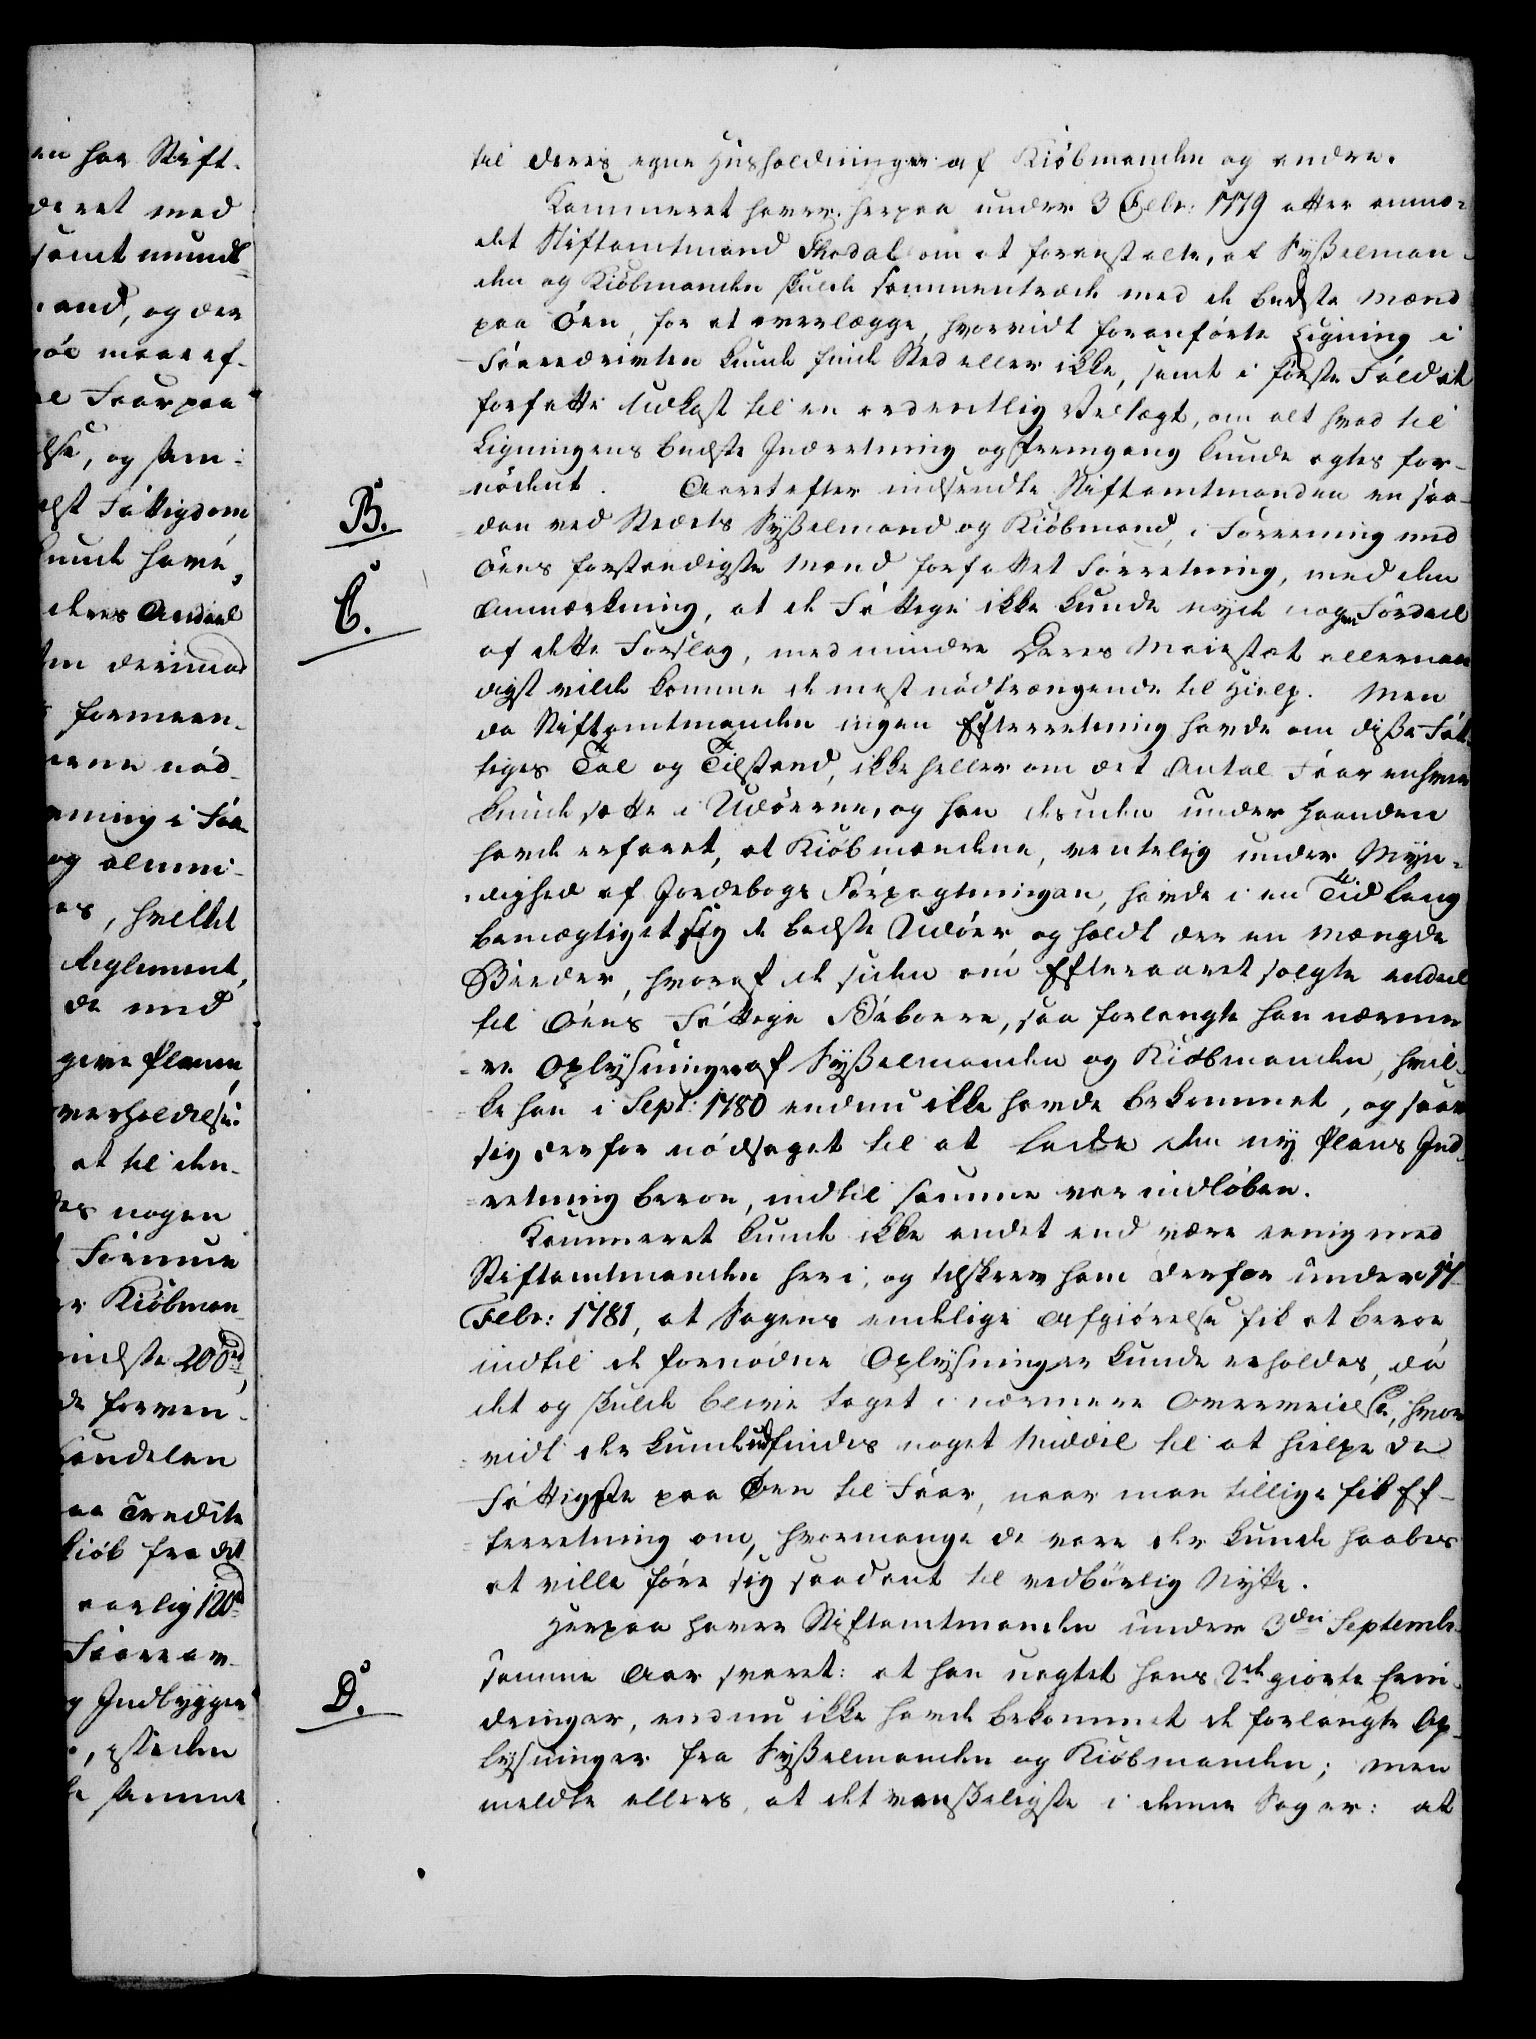 en har Stift-
deret med
samt mundt-
mand, og der
maae af-
Faar paa
else, og sam-
Fattigdom
kunde have,
deres Andeel
derimod
formeen-
nød-
ening i Faa-
og alminde-
es, hvilket
Reglement,
de med
give Planen
verholdelse:
at til den-
des nogen
Formue
er Kiøbman-
mindste 200 rd
de forven-
Handelen
Credite
Kiøb fra det
aarlig 120 rd
Faare av-
Indbygger
, efter den
samme
til deres egne Huusholdninger af Kiøbmanden og andre.
Kammeret haver herpaa under 3 Febr: 1779 atter anmo-
det Stiftamtmand Thodal om at foranstalte, at Sysselman-
den og Kiøbmanden skulde sammentræde med de bedste Mænd
paa Øen, for at overlægge, hvorvidt foranførte Ligning i
Faaredrivten kunde finde Sted eller ikke, samt i første Fald at
forfatte Udkast til en ordentlig Vedtægt, om alt hvad til
Ligningens bedste Indretning og Fremgang kunde agtes for-
nødent. Aaret efter indsendte Stiftamtmanden en saa-
B.
dan ved Stedets Sysselmand og Kiøbmand, i Forening med
Øens forstandigste Mænd forfattet Forretning, med den
C.
Anmærkning, at de Fattige ikke kunde nyde nogen Fordeel
af dette Forslag, med mindre Deres Maiestæt allernaa-
digst vilde komme de mest nødtrængende til Hielp. Men
da Stiftamtmanden ingen Efterretning havde om disse Fat-
tiges Tal og Tilstand, ikke heller om det Antal Faar enhver
kunde sætte i Udøerne, og han desuden under Haanden
havde erfaret, at Kiøbmændene, ventelig under Myn-
dighed af Jordebogs Forpagtningen, havde i en Tid lang
bemægtiget sig de bedste Udøer og holdt der en Mængde
Bæder, hvoraf de siden om Efteraaret solgte endeel
til Øens Fattige Beboere, saa forlangte han nærme-
re Oplysninger af Sysselmanden og Kiøbmanden, hvil-
ke han i Sept: 1780 endnu ikke havde bekommet, og saae
sig derfor nødsaget til at lade den ny Plans Ind-
retning beroe, indtil samme var indløben.
Kammeret kunde ikke andet end være eenig med
Stiftamtmanden heri, og tilskrev ham derfor under 17
Febr: 1781, at Sagens endelige Afgiørelse fik at beroe
indtil de fornødne Oplysninger kunde erholdes, da
det og skulde blive taget i nærmere Overveielse, hvor-
vidt der kunde udfindes noget Middel til at hielpe de
Fattigste paa Øen til Faar, naar man tillige fik Ef-
terretning om, hvormange de vare der kunde haabes
at ville føre sig saadant til vedbørlig Nytte.
Herpaa haver Stiftamtmanden under 3die Septembr
samme Aar svaret: at han uagtet hans 2de giorte Erin-
D.
dringer, endnu ikke havde bekommet de forlangte Op-
lysninger fra Sysselmanden og Kiøbmanden; men
meldte ellers, at det vanskeligste i denne Sag er: at